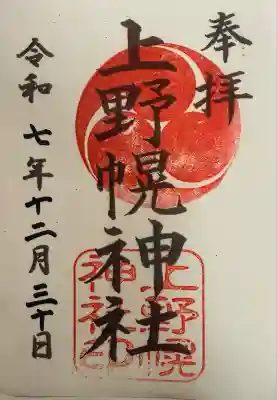 奉拝
上野幌神社
令和七年十二月三十日
上野幌
神社印